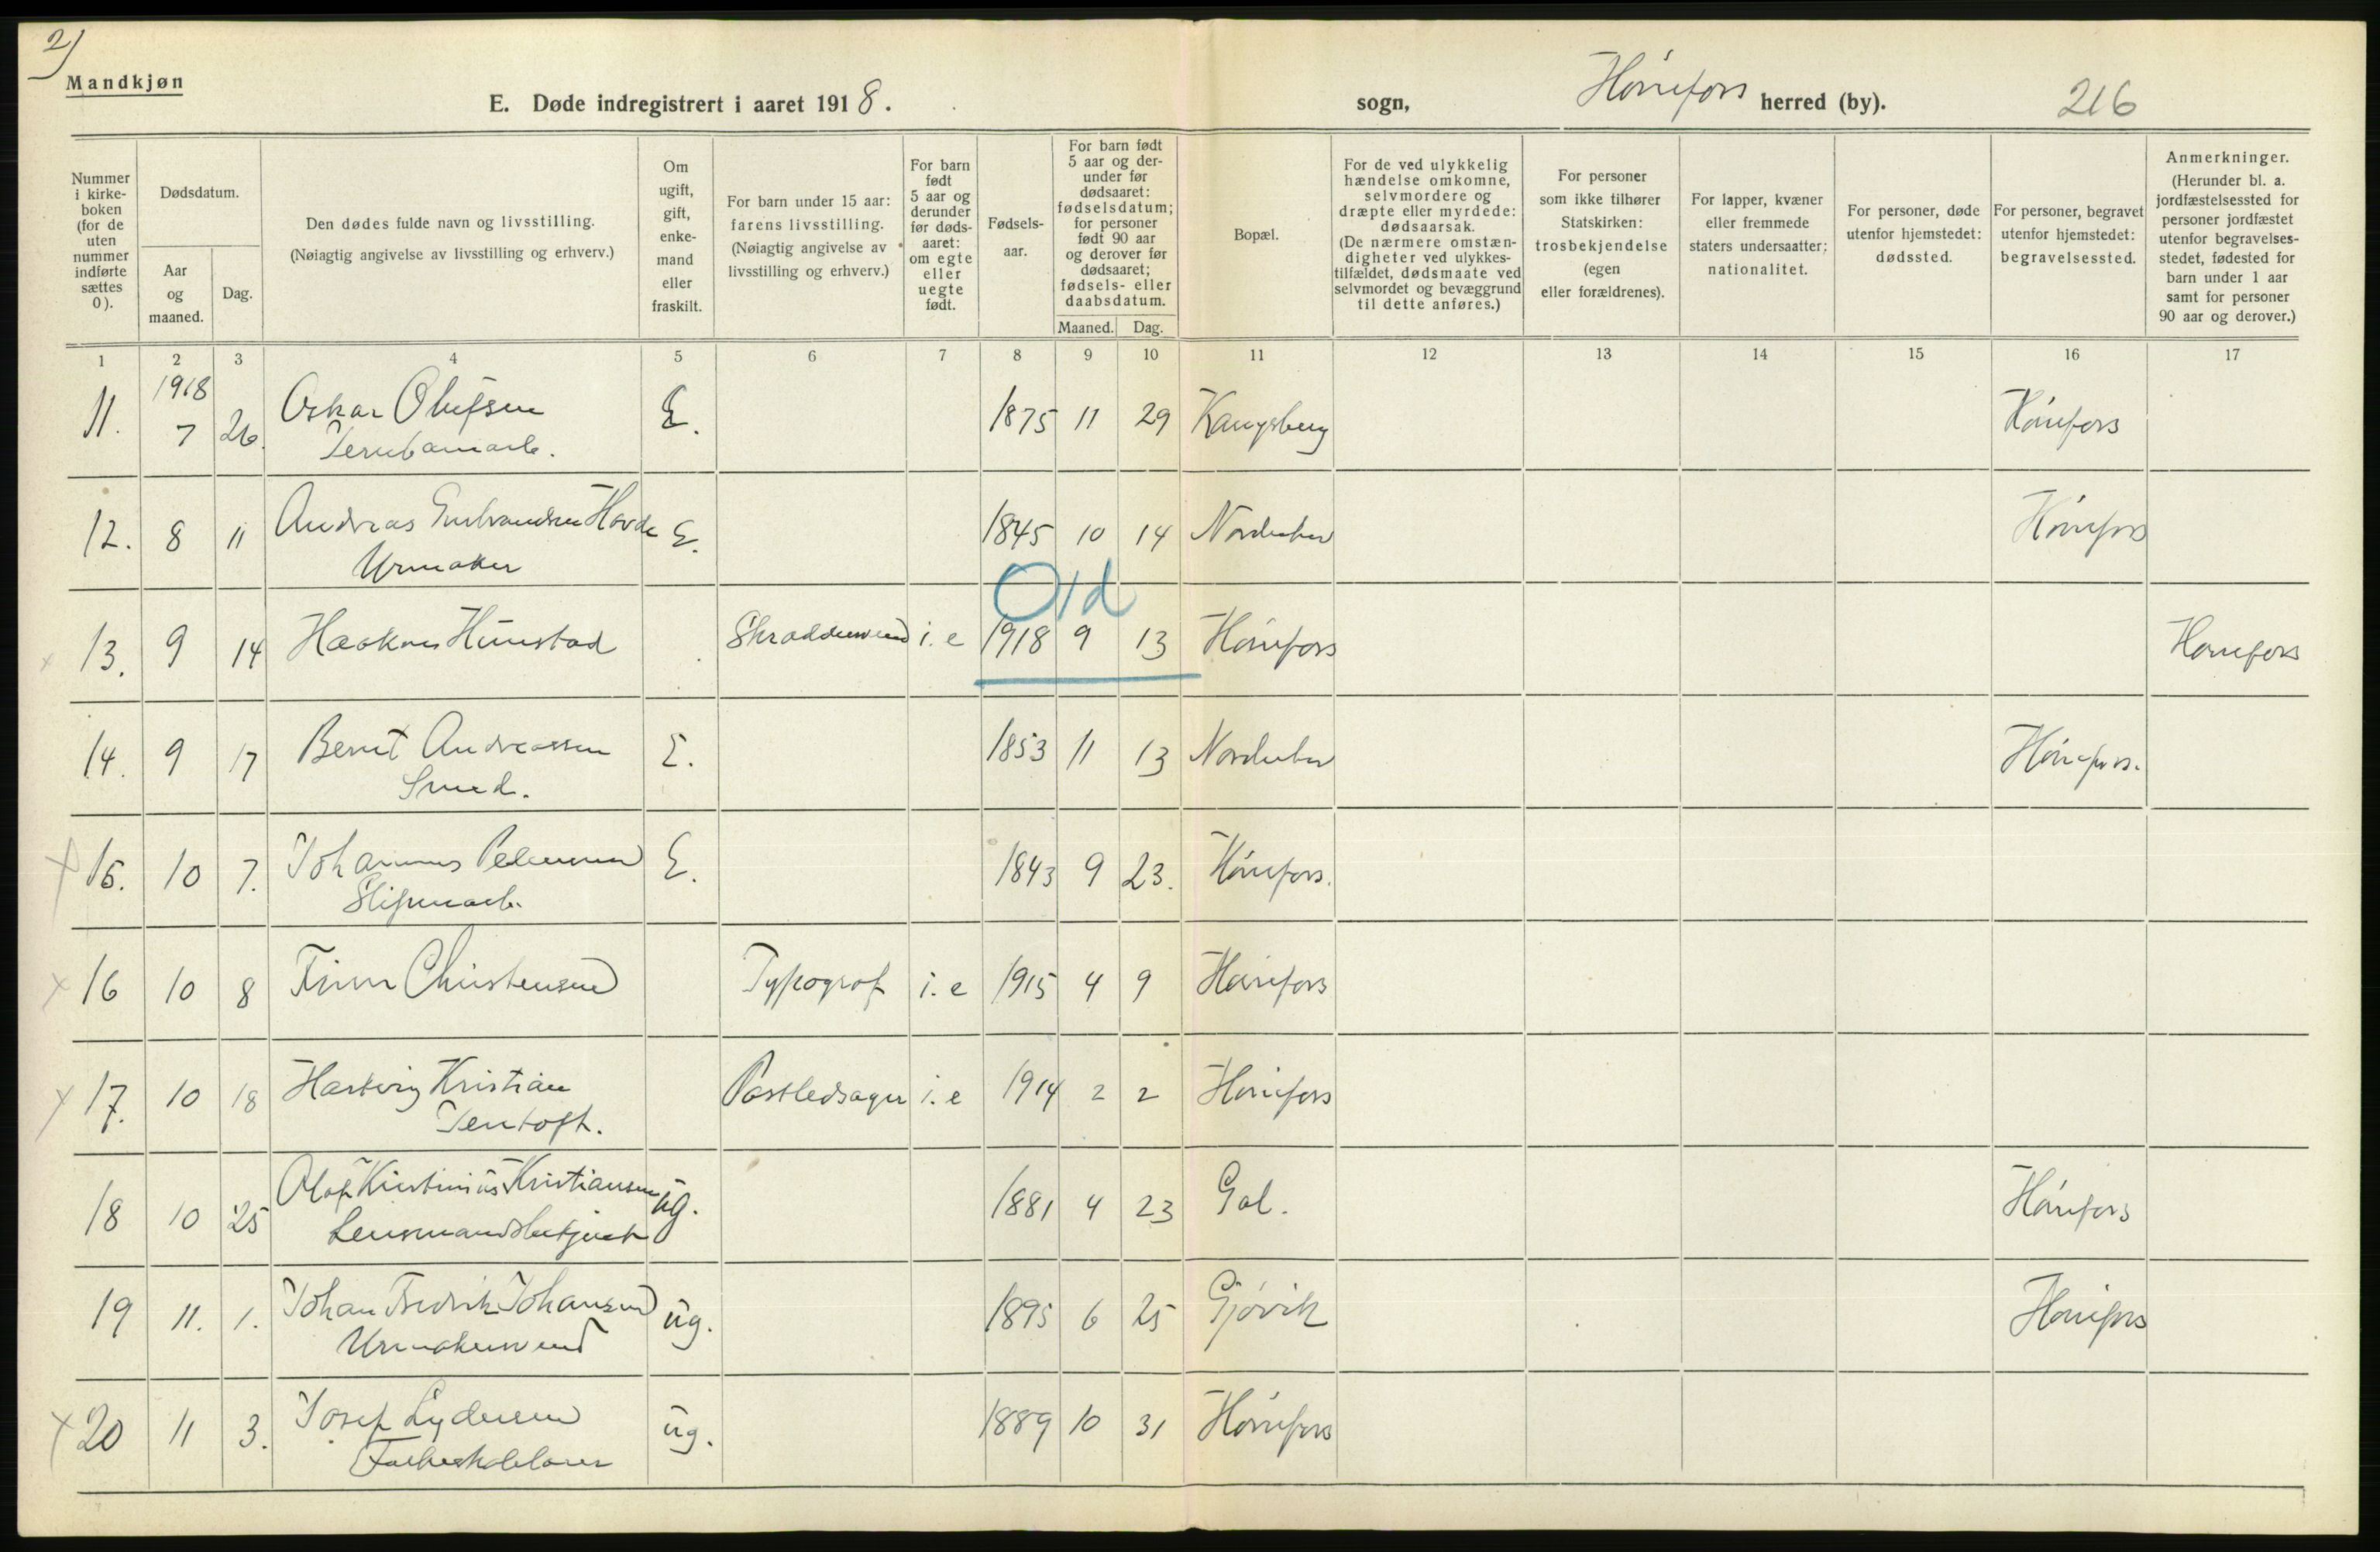 2)
Mandkjøn
E. Døde indregistrert i aaret 1918.
sogn, Hønefoss herred (by). 216
Nummer i kirkeboken (for de uten nummer indførte sættes 0).
Dødsdatum.
Aar og maaned.
Dag.
Den dødes fulde navn og livsstilling.
(Nøiagtig angivelse av livsstilling og erhverv.)
Om ugift, gift, enkemand eller fraskilt.
For barn under 15 aar: farens livsstilling.
(Nøiagtig angivelse av livsstilling og erhverv.)
For barn født 5 aar og derunder før dødsaaret: om egte eller uegte født.
Fødselsaar.
For barn født 5 aar og derunder før dødsaaret: fødselsdatum; for personer født 90 aar og derover før dødsaaret; fødsels- eller daabsdatum.
Maaned. Dag.
Bopæl.
For de ved ulykkelig hændelse omkomne, selvmordere og dræpte eller myrdede: dødsaarsak.
(De nærmere omstændigheter ved ulykkestilfældet, dødsmaate ved selvmordet og bevæggrund til dette anføres.)
For personer som ikke tilhører Statskirken: trosbekjendelse (egen eller forældrenes).
For lapper, kvæner eller fremmede staters undersaatter; nationalitet.
For personer, døde utenfor hjemstedet: dødssted.
For personer, begravet utenfor hjemstedet: begravelsessted.
Anmerkninger.
(Herunder bl. a. jordfæstelsessted for personer jordfæstet utenfor begravelsesstedet, fødested for barn under 1 aar samt for personer 90 aar og derover.)
1 2 3 4 5 6 7 8 9 10 11 12 13 14 15 16 17
1918
11. 7 26. Oskar Olufsen E. 1875 11 29 Kongsberg Hønefoss
12. 8 11 Andreas Gulbrandsen Hovde E. 1845 10 14 Norderhov Hønefoss
Urmaker
Old
13. 9 14 Haakon Hunstad Skræddersvend i. e 1918 9 13 Hønefoss Hønefoss
14. 9 17 Bernt Andreassen E. 1853 11 13 Norderhov Hønefoss.
Smed.
15. 10 7. Johannes E. 1843 9 23. Hønefoss.
Sliperiarb.
16 10 8 Finn Christensen Typograf i. e 1915 4 9 Hønefoss
17. 10 18 Hartvig Kristian Postledsager i. e 1914 2 2 Hønefoss
Jentoft.
18 10 25 Olaf Kristinius Kristiansen ug. 1881 4 23 Gol. Hønefoss
Lensmandsbetjent
19 11. 1. Johan Fredrik Johansen ug. 1895 6 25 Gjøvik Hønefoss
Urmakersvend
20 11 3. Josef Lydersen ug. 1889 10 31 Hønefoss
Folkeskolelærer